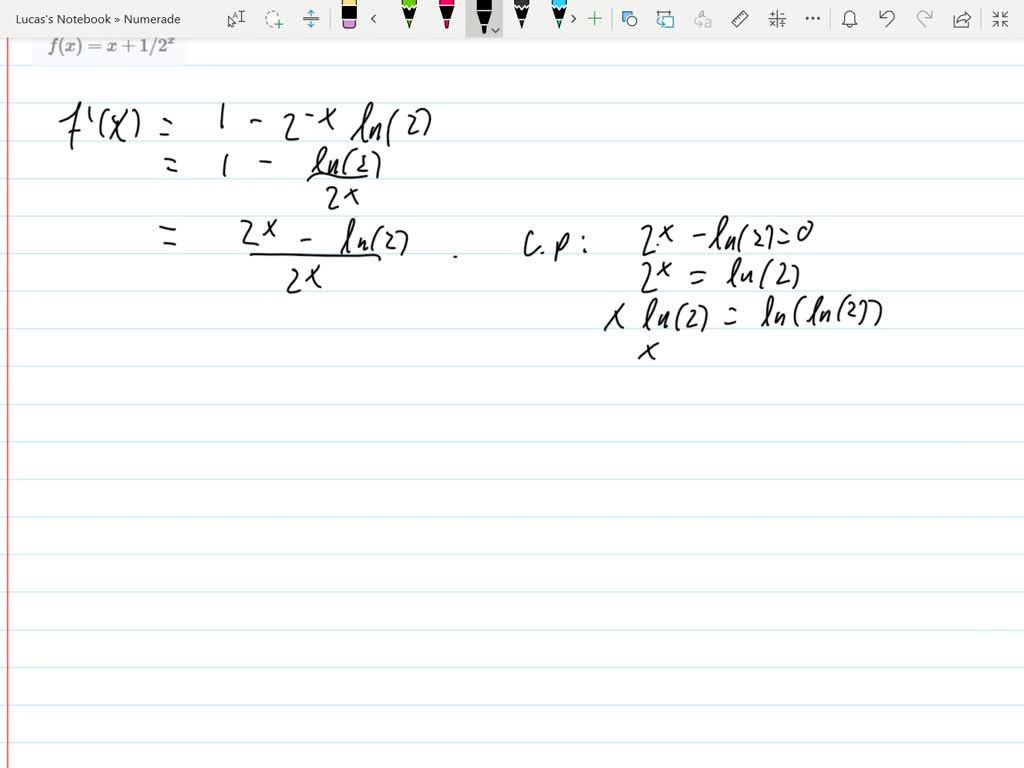 Lucas's Notebook » Numerade
f(x) = x + 1/2^x
f'(x) = 1 - 2^-x ln(2)
= 1 - ln(2)/2^x
= (2^x - ln(2))/2^x .
C.p: 2^x - ln(2) = 0
2^x = ln(2)
x ln(2) = ln(ln(2))
x